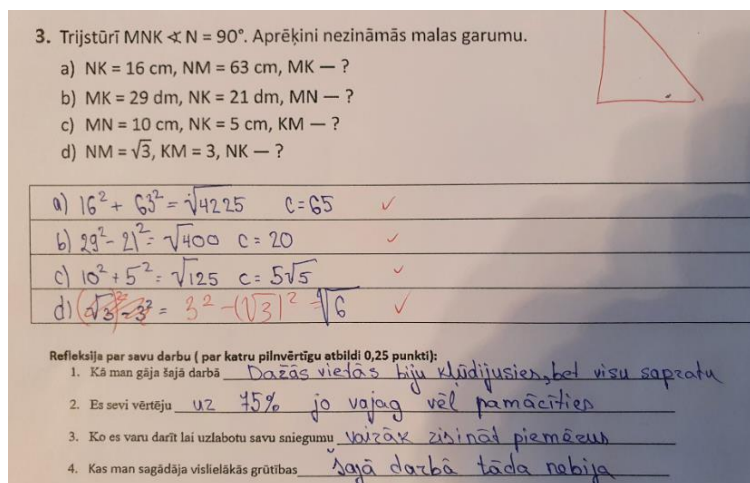 3. Trijstūrī MNK ∢ N = 90°. Aprēķini nezināmās malas garumu.
a) NK = 16 cm, NM = 63 cm, MK — ?
b) MK = 29 dm, NK = 21 dm, MN — ?
c) MN = 10 cm, NK = 5 cm, KM — ?
d) NM = √3, KM = 3, NK — ?
a) 16² + 63² = √4225 c = 65 ✓
b) 29² - 21² = √400 c = 20 ✓
c) 10² + 5² = √125 c = 5√5 ✓
d) (√3)² - 3² = 3² - (√3)² = √6 ✓
Refleksija par savu darbu ( par katru pilnvērtīgu atbildi 0,25 punkti):
1. Kā man gāja šajā darbā Dažās vietās biju kļūdijusies, bet visu sapratu
2. Es sevi vērtēju uz 75% jo vajag vēl pamācīties
3. Ko es varu darīt lai uzlabotu savu sniegumu vairāk piemērus
4. Kas man sagādāja vislielākās grūtības šajā darbā tāda nebija